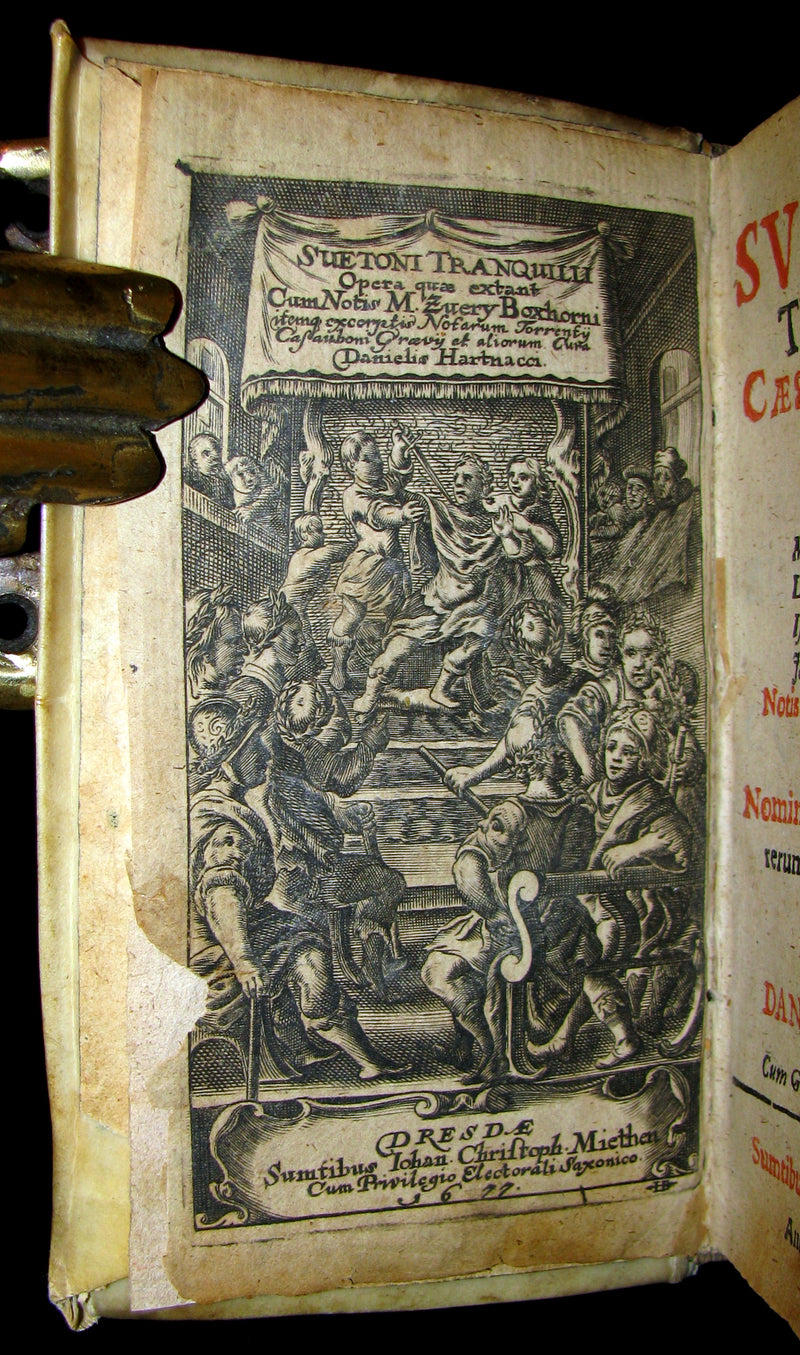 SUETONI TRANQUILLI
Opera quæ extant
Cum Notis M. Zuery Boxhorni
itemq excerptis Notarum Torrentij
Casauboni Grævij et aliorum Cura
Danielis Hartnacci.
DRESDÆ
Sumtibus Iohan. Christoph. Miethen
Cum Privilegio Electorali Saxonico.
1677.
SV
T
CÆS
Notis
Nomin
rerum
DAN
Cum G
Sumtibu